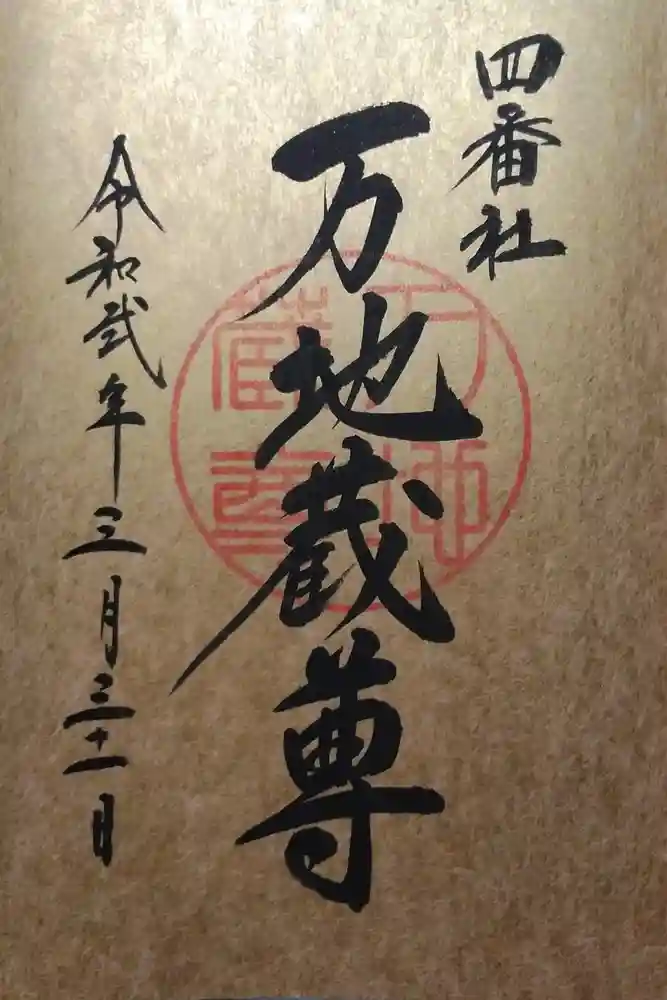 四番社
万地蔵尊
万地
蔵尊
令和弐年三月三十一日